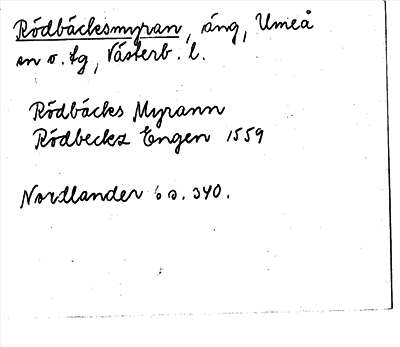 Rödbäcksmyran, äng, Umeå
sn o. tg, Västerb. l.
Rödbäcks Myrann
Rödbeckz Engen 1559
Nordlander 6 s. 340.